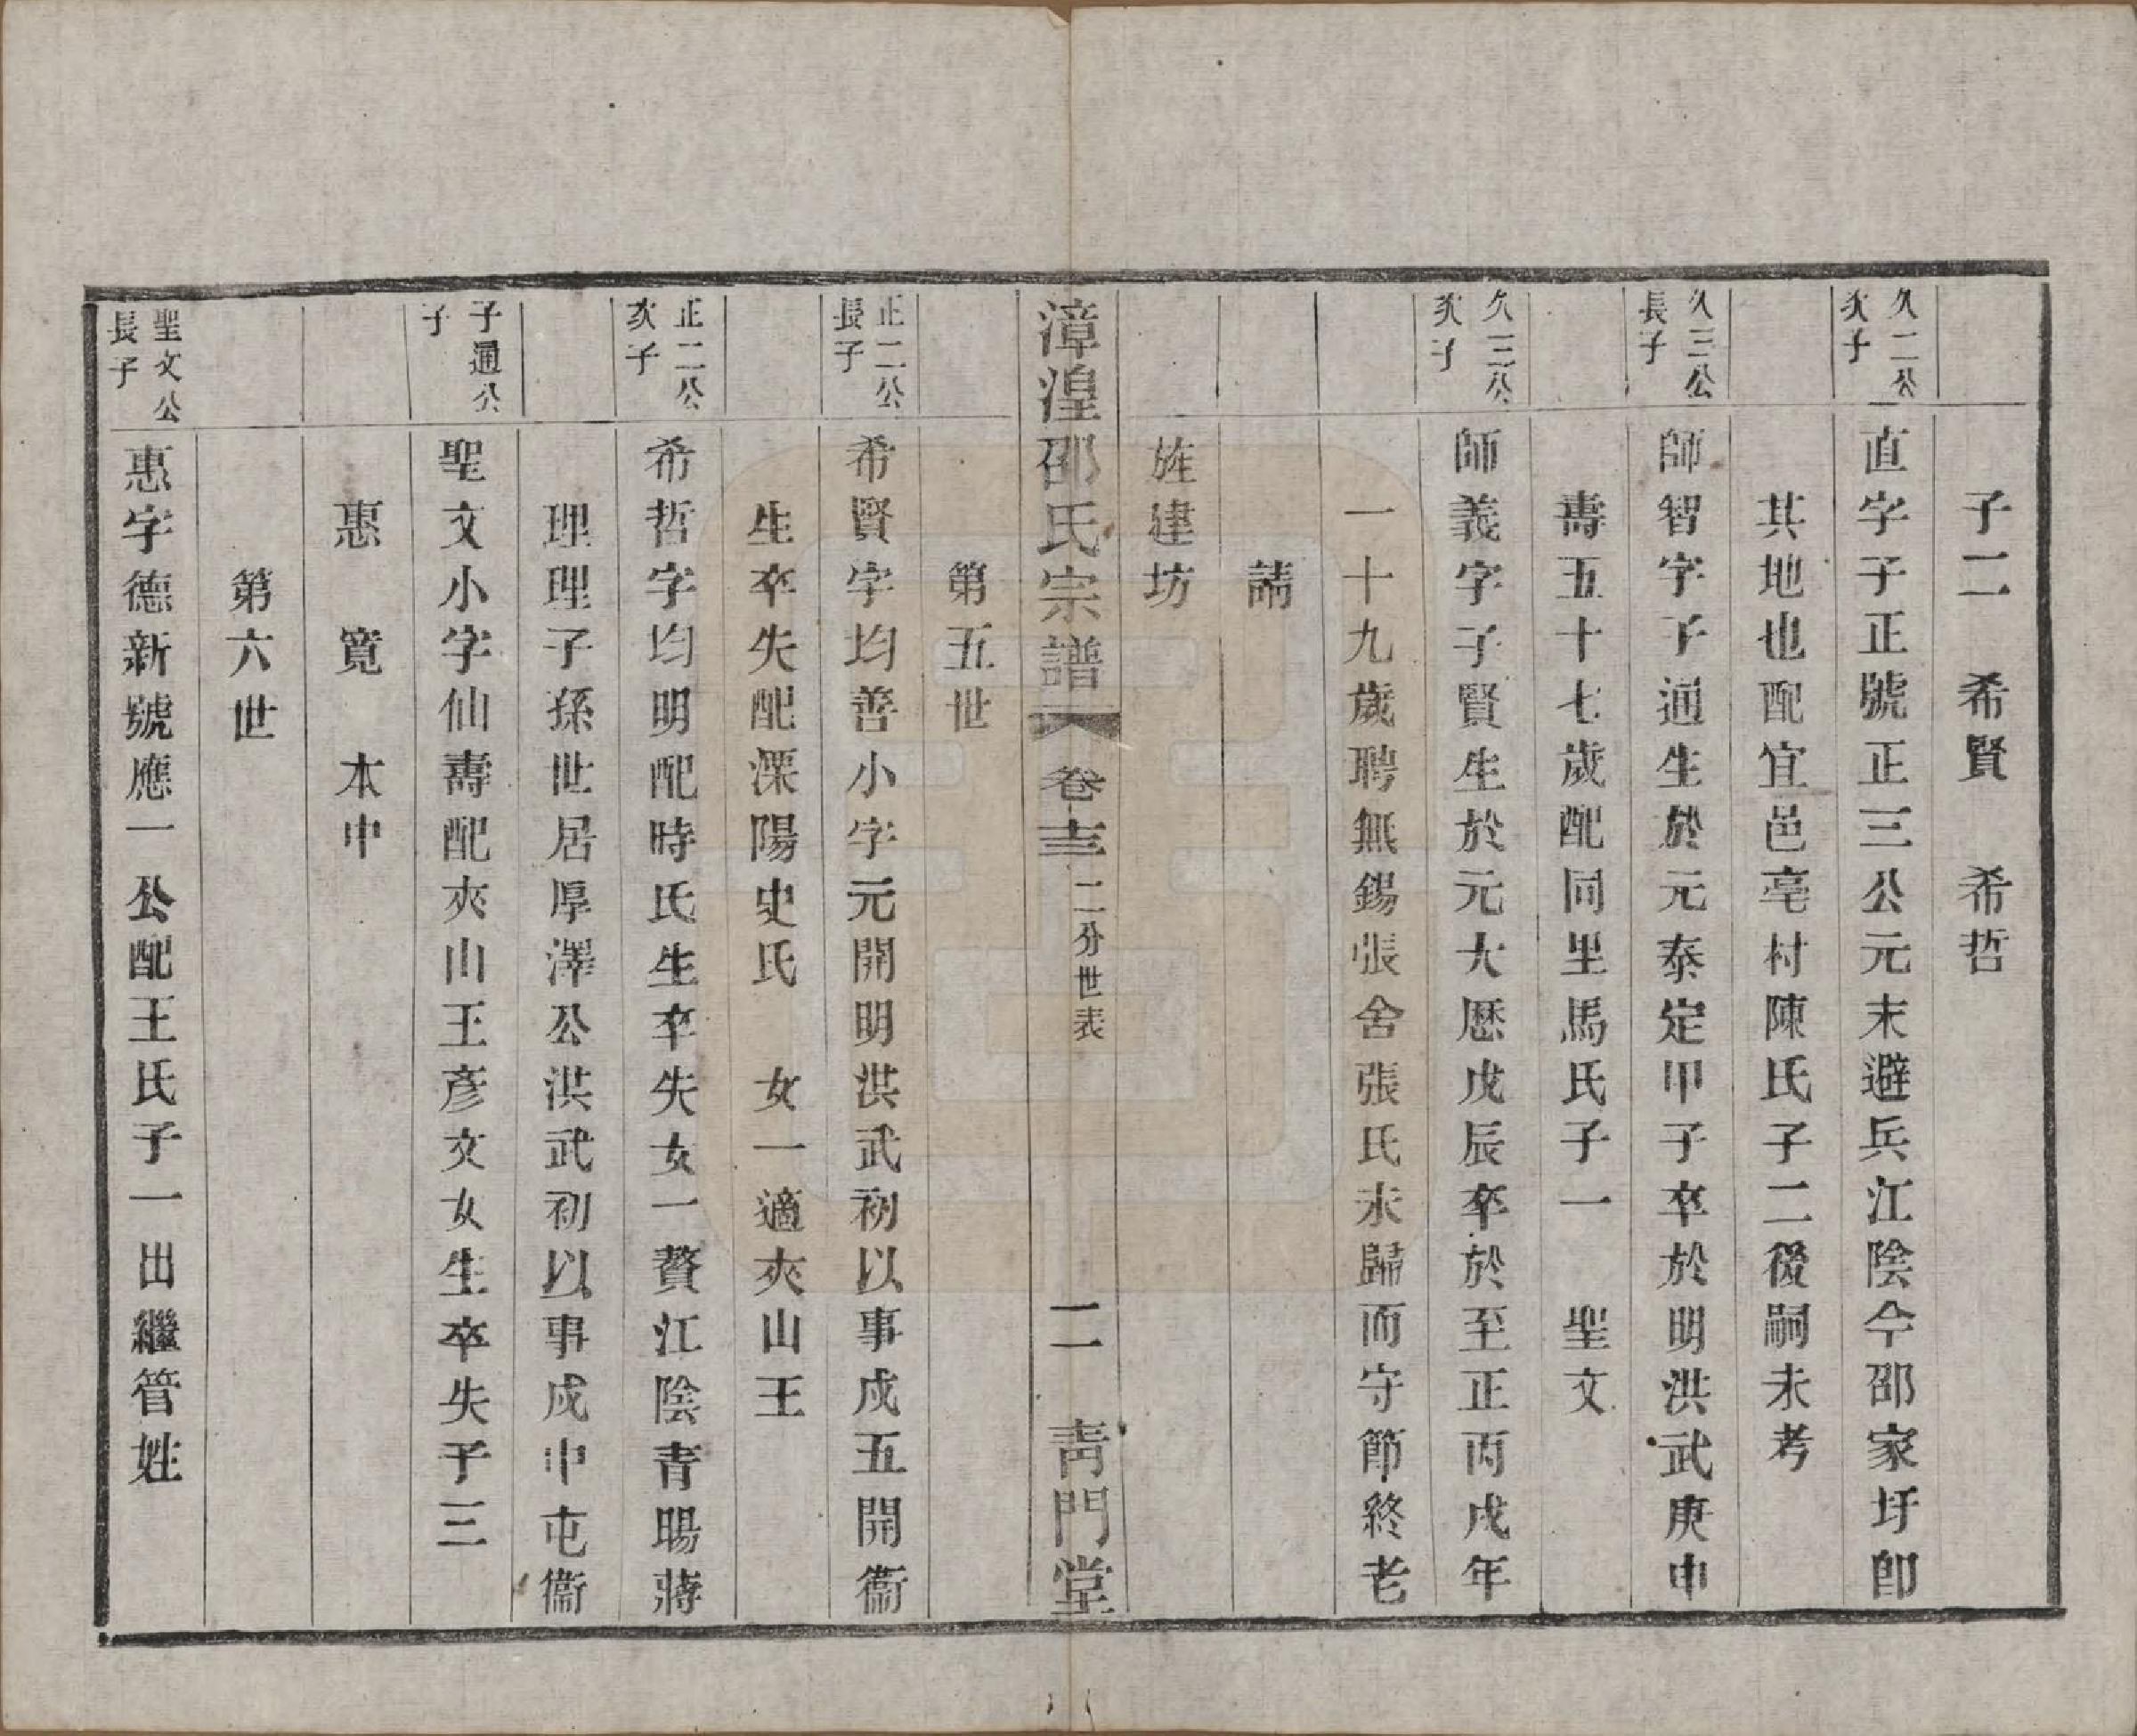 子二　希賢　希哲
久二公次子
直字子正號正三公元末避兵江陰今邵家圩卽
其地也配宜邑亳村陳氏子二後嗣未考
久三公長子
師智字子通生於元泰定甲子卒於明洪武庚申
壽五十七歲配同里馬氏子一　聖文
久三公次子
師義字子賢生於元大歷戊辰卒於至正丙戌年
一十九歲聘無錫張舍張氏未歸而守節終老
請
旌建坊
漳湟邵氏宗譜　卷十三　二分世表　二　青門堂
第五世
正二公長子
希賢字均善小字元開明洪武初以事戍五開衞
生卒失配溧陽史氏　女一適夾山王
正二公次子
希哲字均明配時氏生卒失女一贅江陰青暘蔣
理理子孫世居厚澤公洪武初以事戍中屯衞
子通公子
聖文小字仙壽配夾山王彥文女生卒失子三
惠　寬　本中
第六世
聖文公長子
惠字德新號應一公配王氏子一出繼管姓